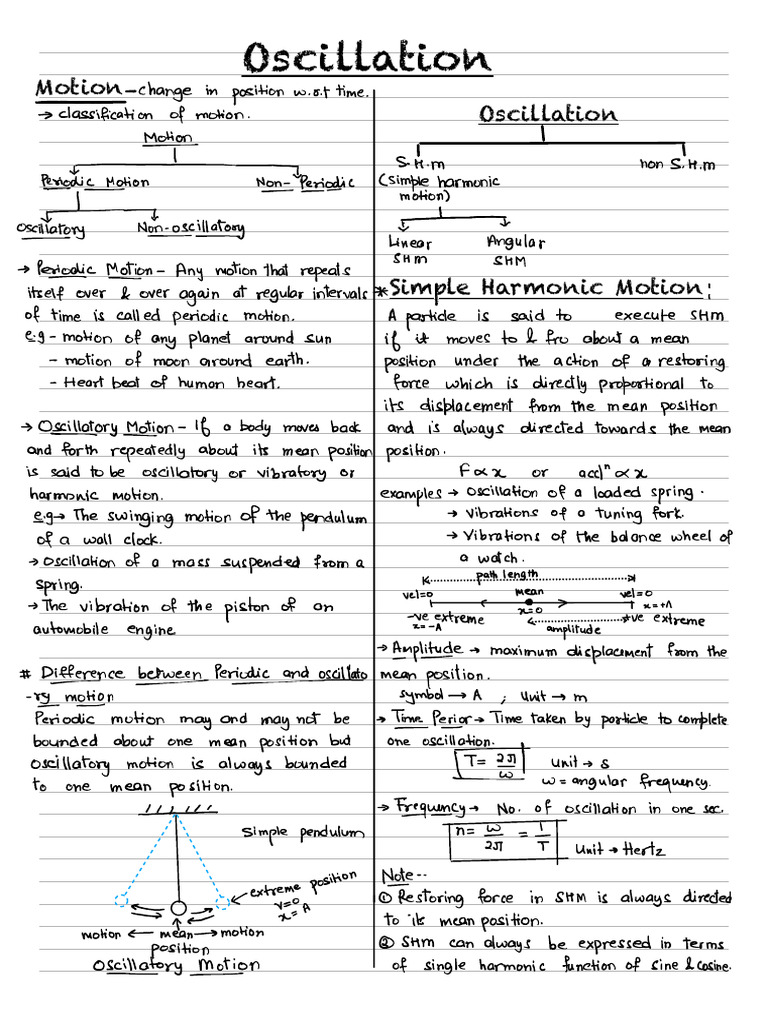 Oscillation
Motion - change in position w.r.t time.
→ classification of motion.
Motion
Periodic Motion Non- Periodic
Oscillatory Non-oscillatory
→ Periodic Motion - Any motion that repeats
itself over & over again at regular intervals
of time is called periodic motion.
e.g - motion of any planet around sun
- motion of moon around earth.
- Heart beat of human heart.
→ Oscillatory Motion - If a body moves back
and forth repeatedly about its mean position
is said to be oscillatory or vibratory or
harmonic motion.
e.g → The swinging motion of the pendulum
of a wall clock.
→ Oscillation of a mass suspended from a
spring.
→ The vibration of the piston of an
automobile engine
# Difference between Periodic and oscillato
-ry motion
Periodic motion may and may not be
bounded about one mean position but
oscillatory motion is always bounded
to one mean position.
Simple pendulum
extreme position
v=0
x=A
motion ← mean → motion
position
Oscillatory Motion
Oscillation
S.H.m non S.H.m
(Simple harmonic
motion)
Linear Angular
SHm SHM
* Simple Harmonic Motion:
A particle is said to execute SHM
if it moves to & fro about a mean
position under the action of a restoring
force which is directly proportional to
its displacement from the mean position
and is always directed towards the mean
position.
F∝x or accl^n ∝ x
examples → oscillation of a loaded spring.
→ Vibrations of a tuning fork.
→ Vibrations of the balance wheel of
a watch.
path length
vel=0 mean vel=0
x=0 x=+A
-ve extreme +ve extreme
x=-A amplitude
→ Amplitude → maximum displacement from the
mean position.
symbol → A ; Unit → m
→ Time Perior → Time taken by particle to complete
one oscillation.
T = 2π/ω Unit → s
ω = angular frequency.
→ Frequency → No. of oscillation in one sec.
n = ω/2π = 1/T Unit → Hertz
Note--
① Restoring force in SHM is always directed
to its mean position.
② SHM can always be expressed in terms
of single harmonic function of sine & cosine.